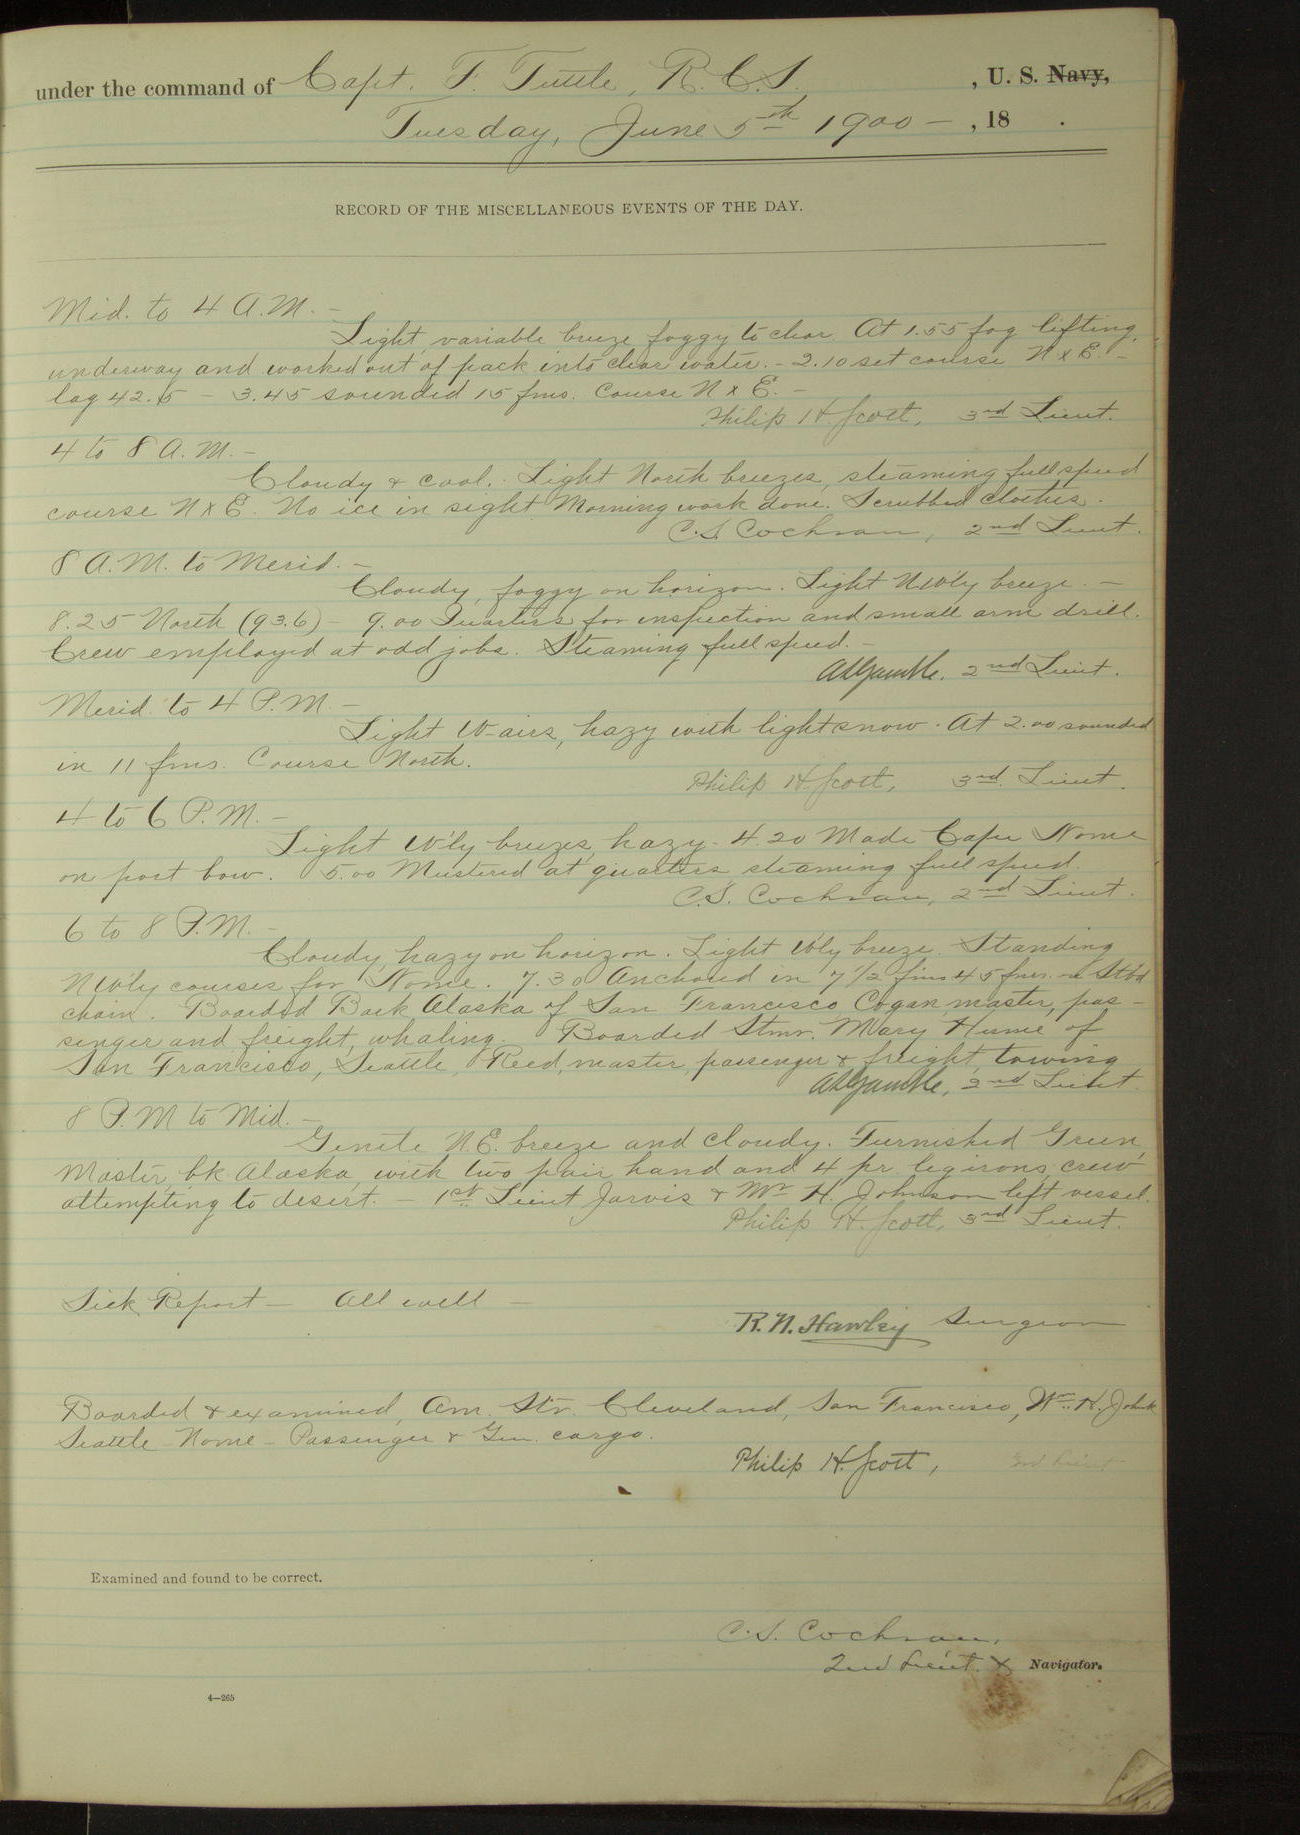 under the command of Capt. F. Tuttle, R.C.S. , U. S. Navy,
Tuesday, June 5th 1900 — , 18 .
RECORD OF THE MISCELLANEOUS EVENTS OF THE DAY.
Mid. to 4 A.M. —
Light variable breeze foggy to clear At 1.55 fog lifting,
underway and worked out of pack into clear water. - 2.10 set course N x E. -
log 42.5 - 3.45 sounded 15 fms. Course N x E. -
Philip H. Scott, 3rd Lieut.
4 to 8 A.M. —
Cloudy & cool. Light North breezes, steaming full speed
course N x E. No ice in sight Morning work done. Scrubbed clothes.
C.S. Cochran, 2nd Lieut.
8 A.M. to Merid. —
Cloudy, foggy on horizon. Light NW'ly breeze. —
8.25 North (93.6) - 9.00 Quarters for inspection and small arm drill.
Crew employed at odd jobs. Steaming full speed. —
A L Gamble. 2nd Lieut.
Merid. to 4 P.M. —
Light W-airs, hazy with light snow. At 2.00 sounded
in 11 fms. Course North.
Philip H. Scott, 3rd Lieut.
4 to 6 P.M. —
Light W'ly breezes, hazy - 4.20 Made Cape Nome
on port bow. 5.00 Mustered at quarters steaming full speed.
C.S. Cochran, 2nd Lieut.
6 to 8 P.M. —
Cloudy, hazy on horizon. Light W'ly breeze. Standing
NW'ly courses for Nome. 7.30 Anchored in 7 1/2 fms 45 fms. on Stb'd
chain. Boarded Bark Alaska of San Francisco, Cogan, master, pas-
senger and freight, whaling. Boarded Stmr. Mary Hume of
San Francisco, Seattle, Reed, master, passenger & freight, towing
A L Gamble, 2nd Lieut.
8 P.M to Mid. —
Gentle N.E. breeze and cloudy. Furnished Green,
Master, bk Alaska, with two pair hand and 4 pr leg irons, crew
attempting to desert. - 1st Lieut Jarvis & Mr H. Johnson left vessel.
Philip H. Scott, 3rd Lieut.
Sick Report — All well —
R.N. Hawley Surgeon
Boarded & examined, Am. Str. Cleveland, San Francisco, Wm. H.
Seattle - Nome - Passenger & Gen. cargo.
Philip H. Scott, 3rd Lieut
Examined and found to be correct.
C.S. Cochran,
2nd Lieut. & Navigator.
4—265